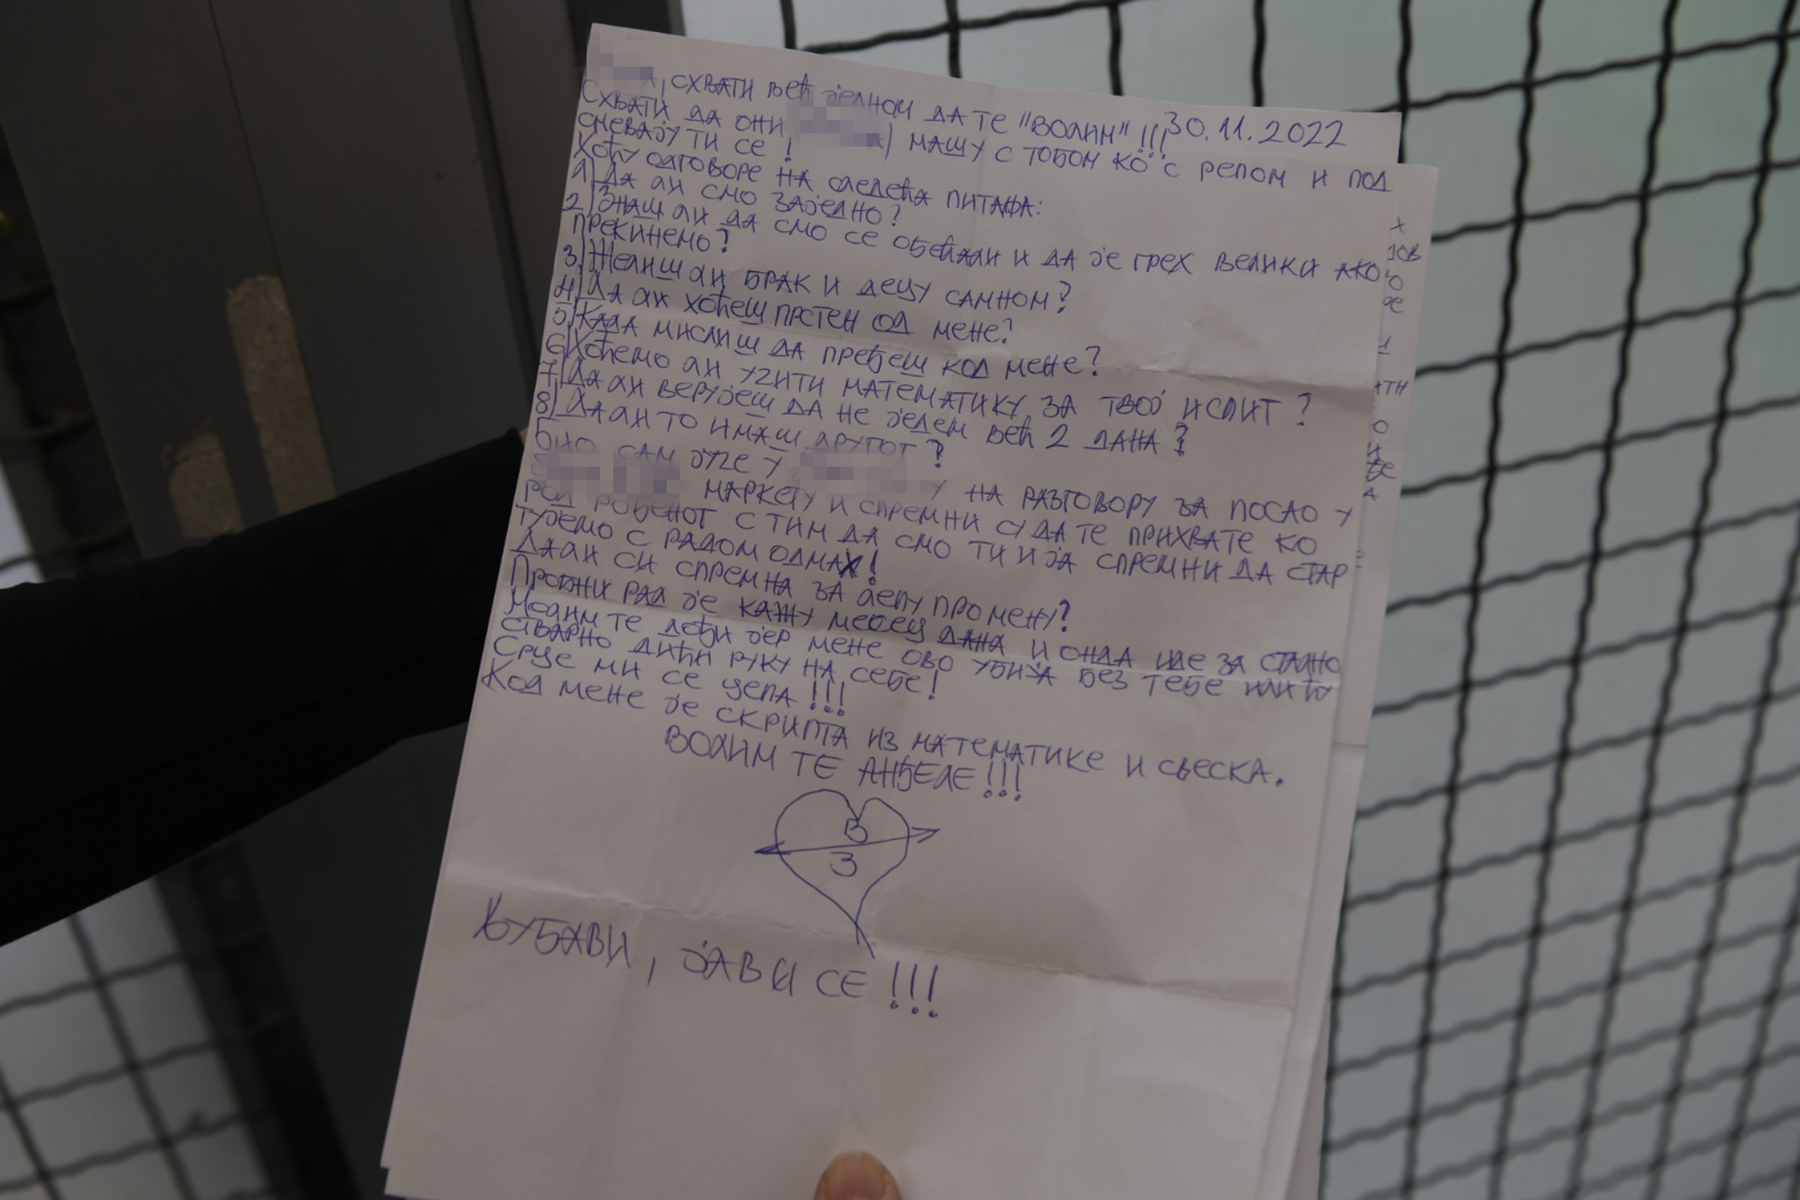 СХВАТИ ВЕЋ ЈЕДНОМ ДА ТЕ "ВОЛИМ" !!! 30.11.2022
СХВАТИ ДА ОНИ МАШУ С ТОБОМ КО С РЕПОМ И ПОД
СМЕВАЈУ ТИ СЕ !
ХОЋУ ОДГОВОРЕ НА СЛЕДЕЋА ПИТАЊА:
1) ДА ЛИ СМО ЗАЈЕДНО?
2) ЗНАШ ЛИ ДА СМО СЕ ОБЕЋАЛИ И ДА ЈЕ ГРЕХ ВЕЛИКИ АКО
ПРЕКИНЕМО?
3) ЖЕЛИШ ЛИ БРАК И ДЕЦУ САМНОМ?
4) ДА ЛИ ХОЋЕШ ПРСТЕН ОД МЕНЕ?
5) КАДА МИСЛИШ ДА ПРЕЂЕШ КОД МЕНЕ?
6) ХОЋЕМО ЛИ УЧИТИ МАТЕМАТИКУ ЗА ТВОЈ ИСПИТ?
7) ДА ЛИ ВЕРУЈЕШ ДА НЕ ЈЕДЕМ ВЕЋ 2 ДАНА?
8) ДА ЛИ ТО ИМАШ ДРУГОГ?
БИО САМ ЈУЧЕ У У НА РАЗГОВОРУ ЗА ПОСАО У
МАРКЕТУ И СПРЕМНИ СУ ДА ТЕ ПРИХВАТЕ КО
РОД РОЂЕНОГ С ТИМ ДА СМО ТИ И ЈА СПРЕМНИ ДА СТАР
ТУЈЕМО С РАДОМ ОДМАХ!
ДА ЛИ СИ СПРЕМНА ЗА ЛЕПУ ПРОМЕНУ?
ПРОБНИ РАД ЈЕ КАЖУ МЕСЕЦ ДАНА И ОНДА ИДЕ ЗА СТАЛНО
МОЛИМ ТЕ ДОЂИ ЈЕР МЕНЕ ОВО УБИЈА БЕЗ ТЕБЕ ИЛИ ЋУ
СТВАРНО ДИЋИ РУКУ НА СЕБЕ!
СРЦЕ МИ СЕ ЦЕПА !!!
КОД МЕНЕ ЈЕ СКРИПТА ИЗ МАТЕМАТИКЕ И СВЕСКА.
ВОЛИМ ТЕ АНЂЕЛЕ!!!
В
З
ЉУБАВИ, ЈАВИ СЕ !!!